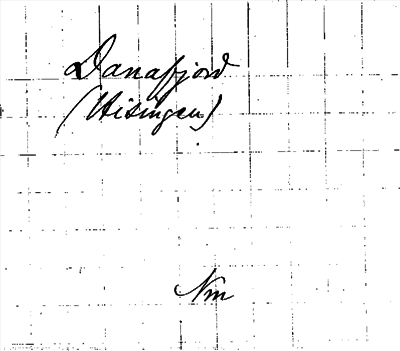 Danafjord
(Hisingen)
Nm